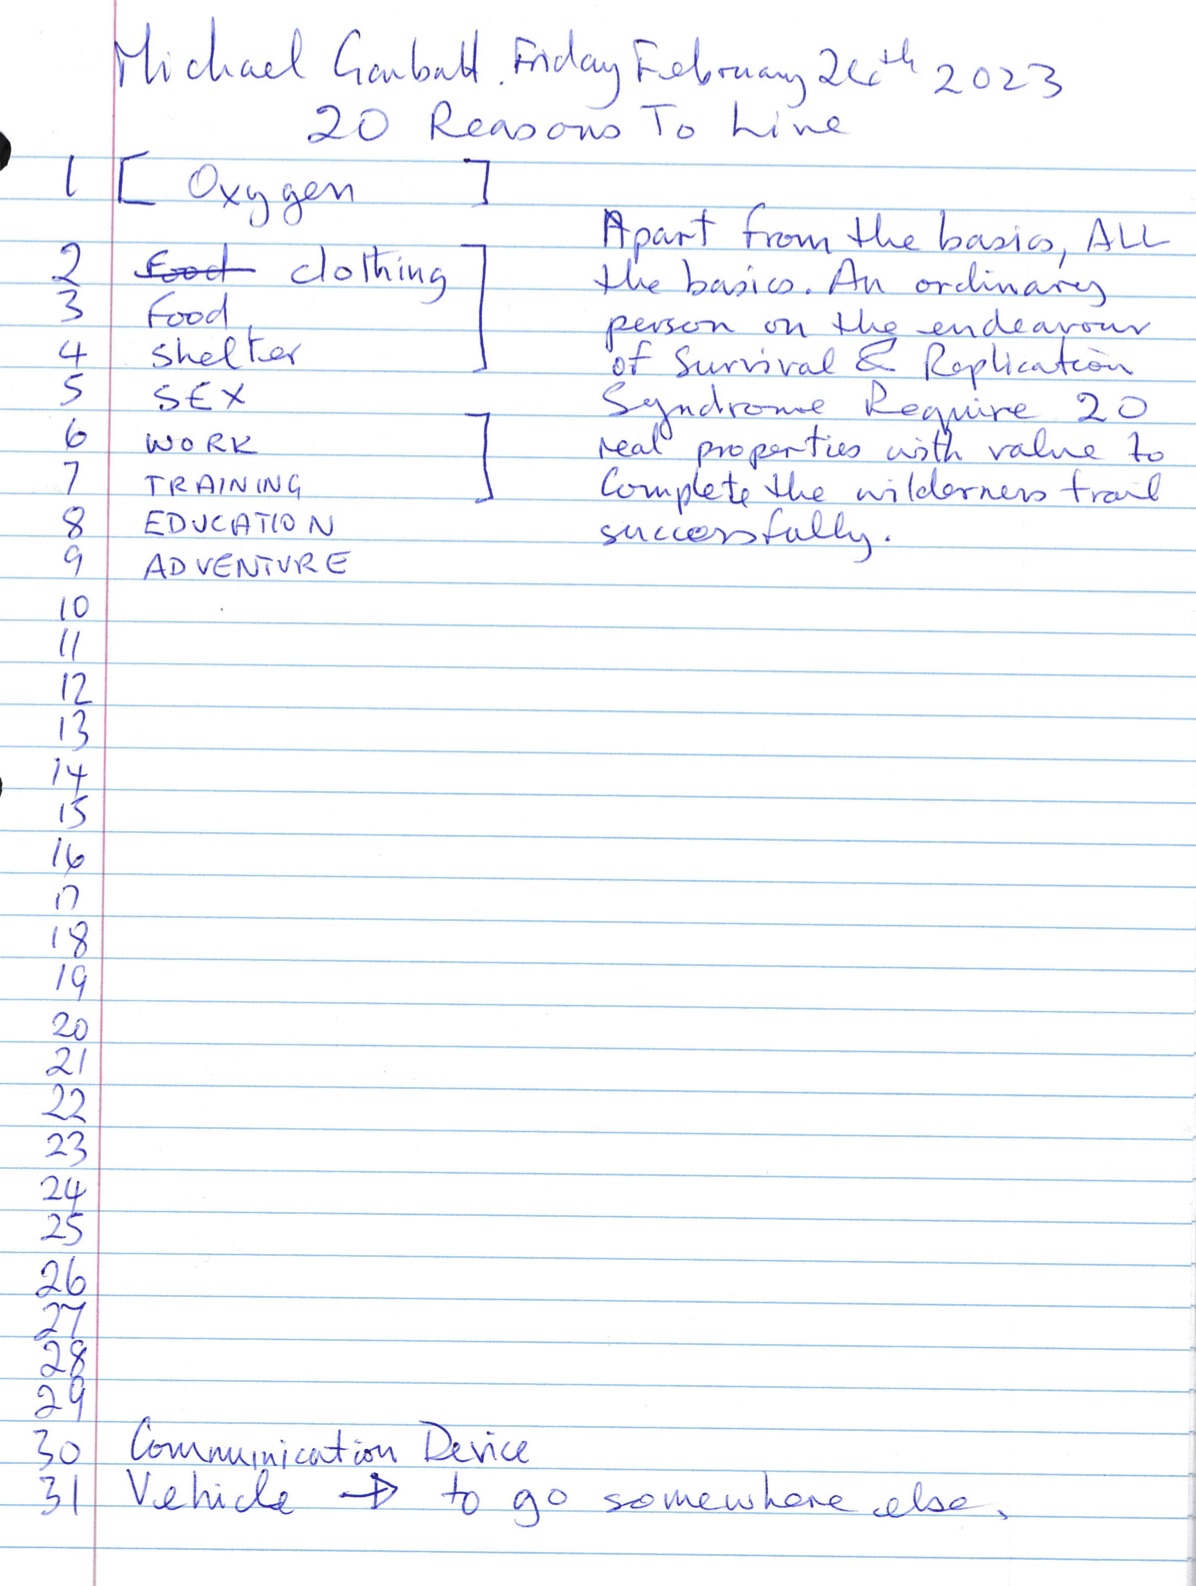 Michael Garbatt. Friday February 24th 2023
20 Reasons To Live
1 [ Oxygen ]
2 Food clothing ]
3 Food
4 shelter
5 SEX
6 WORK ]
7 TRAINING
8 EDUCATION
9 ADVENTURE
Apart from the basics, ALL
the basics. An ordinary
person on the endeavour
of Survival & Replication
Syndrome Require 20
real properties with value to
Complete the wilderness trail
successfully.
10
11
12
13
14
15
16
17
18
19
20
21
22
23
24
25
26
27
28
29
30 Communication Device
31 Vehicle → to go somewhere else.